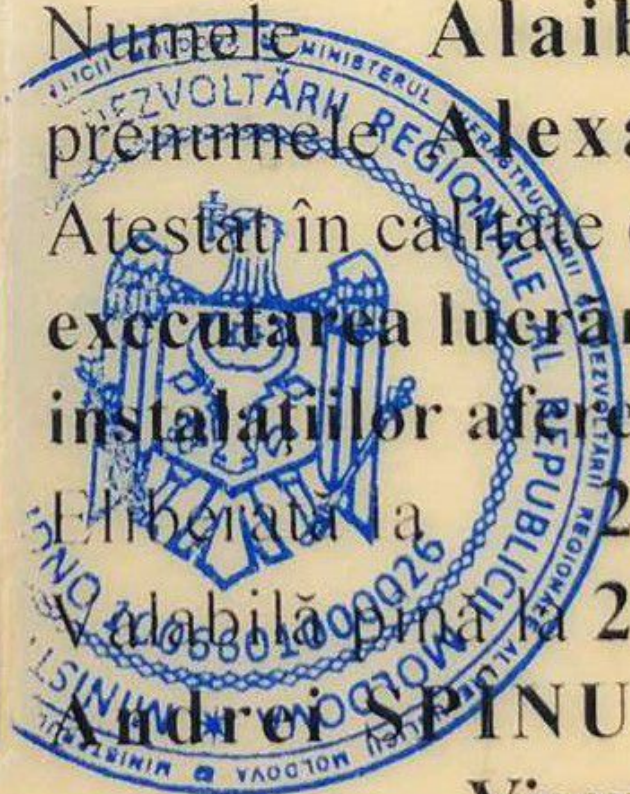 Numele Alaib
prenumele Alexa
Atestat în calitate
executarea lucrăr
instalațiilor afere
Eliberată la 2
Valabilă pînă la 2
Andrei SPINU
MINISTERUL INFRASTRUCTURII ȘI DEZVOLTĂRII REGIONALE AL REPUBLICII MOLDOVA
DEZVOLTĂRII REGIONALE AL REPUBLICII MOLDOVA * MINIST